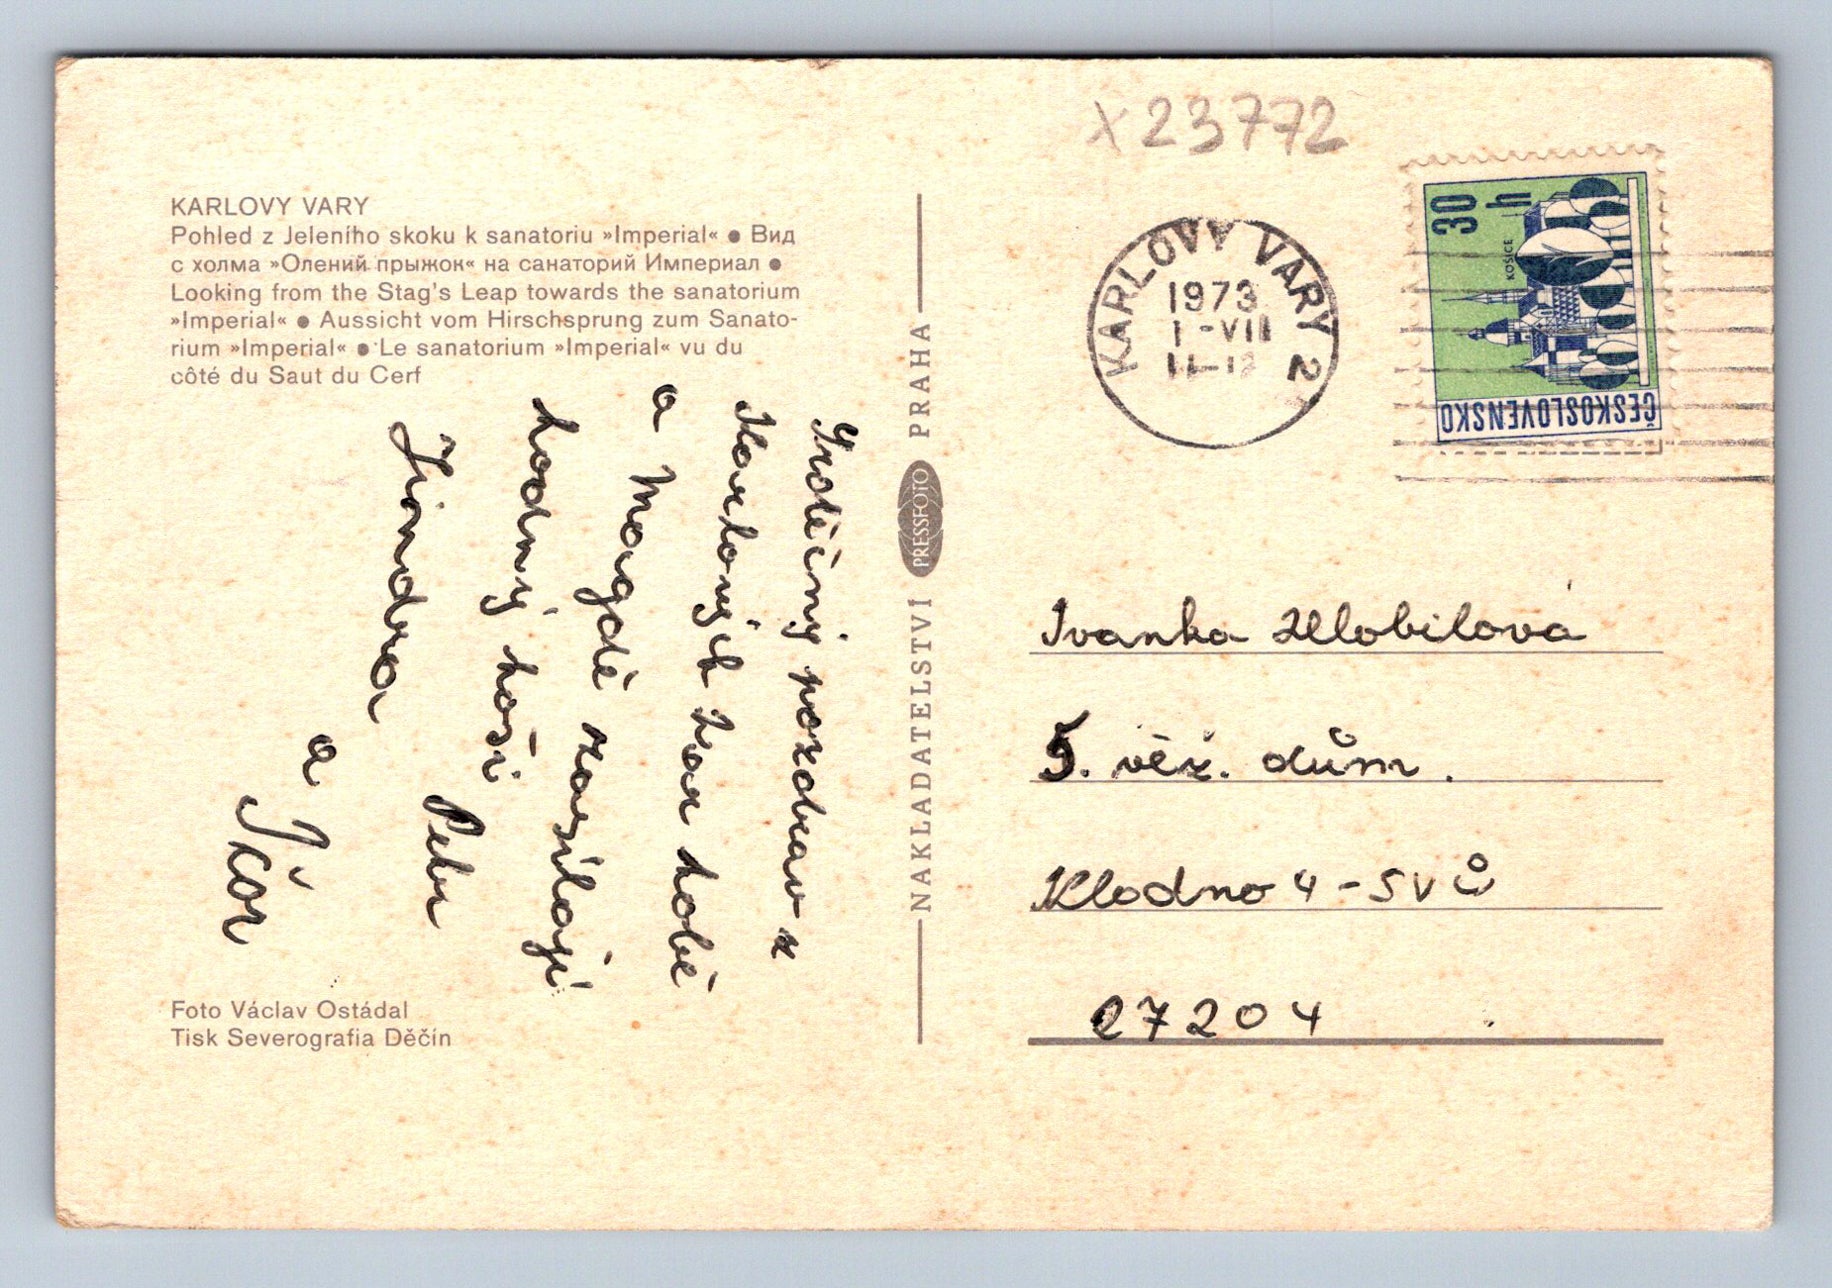 X 23772
KARLOVY VARY
Pohled z Jeleního skoku k sanatoriu »Imperial« ● Вид
с холма »Олений прыжок« на санаторий Империал ●
Looking from the Stag's Leap towards the sanatorium
»Imperial« ● Aussicht vom Hirschsprung zum Sanato-
rium »Imperial« ● Le sanatorium »Imperial« vu du
côté du Saut du Cerf
Srdečný pozdrav z
Karlových Var tobě
a Magdě zasílají
hodný hoši Petr
Jindra
a Igor
Foto Václav Ostádal
Tisk Severografia Děčín
NAKLADATELSTVÍ PRESSFOTO PRAHA
KARLOVY VARY 2
1973
1-VII
11-12
30 h
KOŠICE
ČESKOSLOVENSKO
Ivanka Hlobilová
5. věž. dům.
Kladno 4 - SVŮ
27204